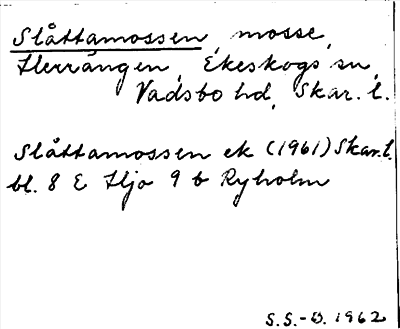 Slåttamossen, mosse,
Herrängen, Ekeskogs sn,
Vadsbo hd, Skar. l.
Slåttamossen ek (1961) Skar. l.
bl. 8 E Hjo 9 b Ryholm
S.S.-B. 1962